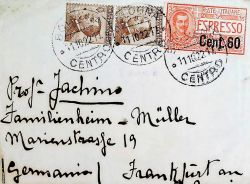 11.10.22
CENTRO
11.10.22
CENTRO
ESPRESSO
Cent. 60
Prof. Jachino
Familienheim - Müller
Marienstrasse 19
(Germania) Frankfurt am